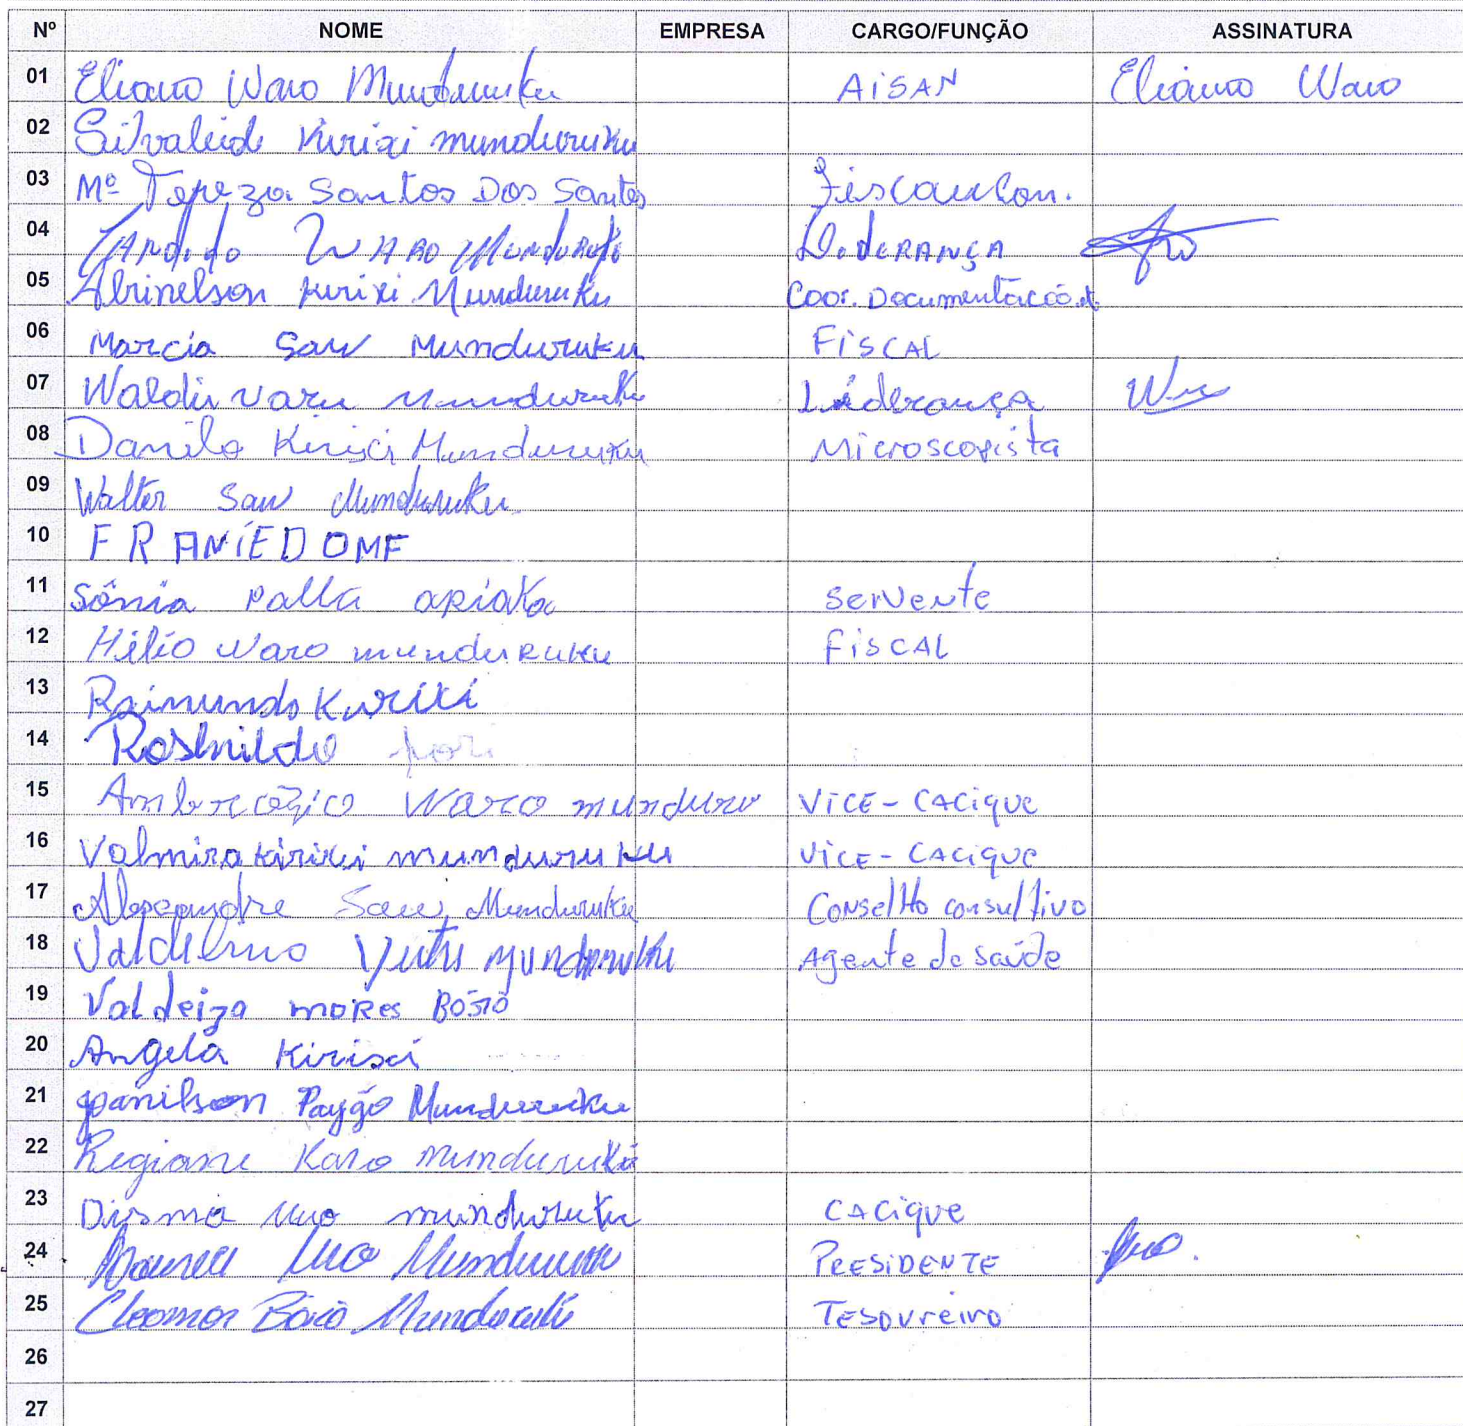 Nº NOME EMPRESA CARGO/FUNÇÃO ASSINATURA
01 Eliano Waro Munduruku AiSAN Eliano Waro
02 Silvaleide Kirixi munduruku
03 Mª Tereza Santos Dos Santos Fiscal
04 Cândido WARO Munduruku LiDERANÇA
05 Abinelson Kirixi Munduruku Coor. Documentação
06 Marcia Saw Munduruku FiSCAL
07 Waldir Munduruku Liderança
08 Danilo Kirixi Munduruku Microscopista
09 Walter Saw Munduruku
10 FRANiEDOMF
11 Sônia Palla apiaka Servente
12 Hélio Waro munduRuku FiSCAL
13 Raimundo Kirixi
14 Rosenildo
15 Waro munduru ViCE-CACique
16 Valmira kirixi munduruku ViCE-CACique
17 Alexandre Saw Munduruku Conselho consultivo
18 Munduruku Agente de Saúde
19 Valdeiza moRes BÓRÔ
20 Angela Kirixi
21 Paygo Munduruku
22 Regiane Karo munduruku
23 Disma Uuo munduruku CACique
24 Uuo Munduruku PRESiDENTE
25 Cleomar Bórô Munduruku Tesoureiro
26
27